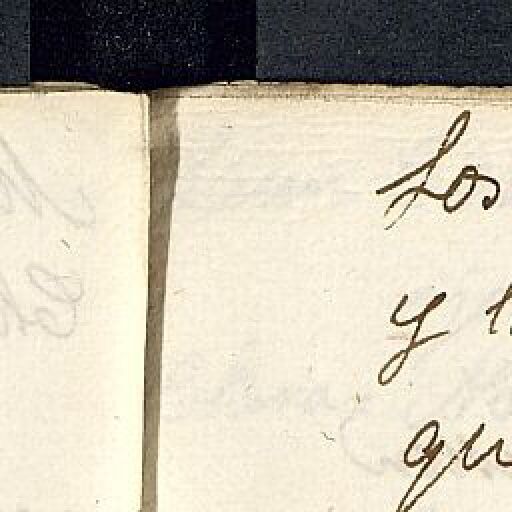 Los
y l
qu